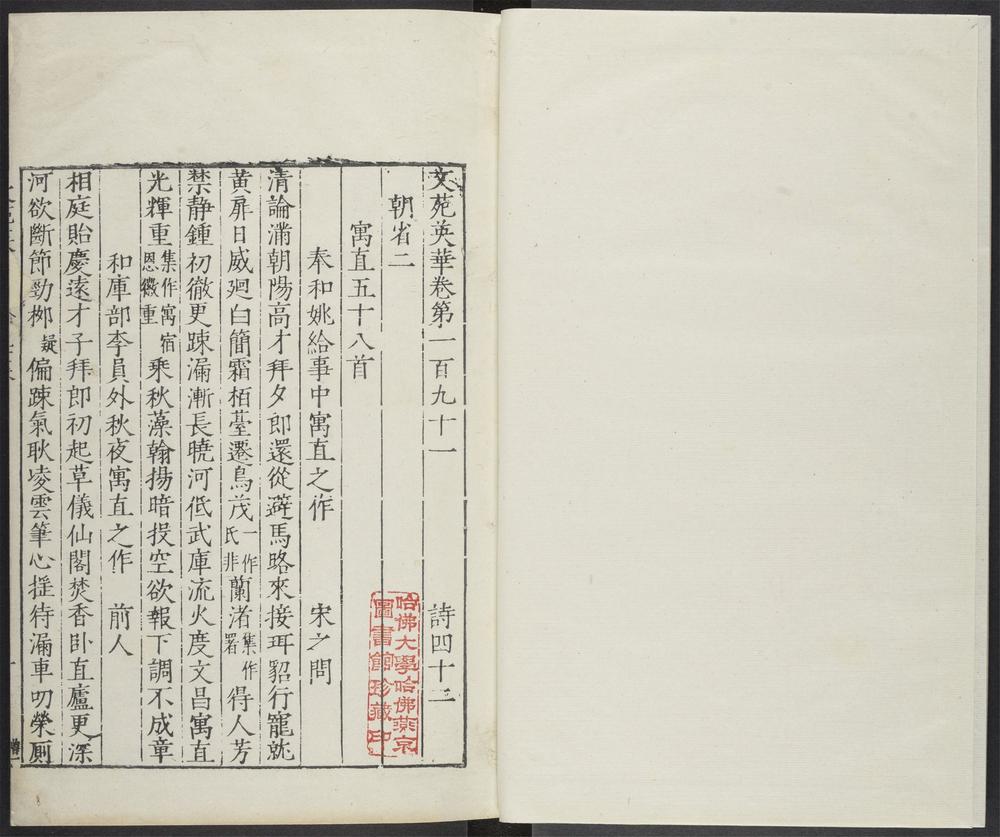 文苑英華卷第一百九十一　詩四十二
朝省二
寓直五十八首
奉和姚給事中寓直之作　宋之問
清論滿朝陽高才拜夕郎還從避馬路來接珥貂行寵就
黃扉日威廻白簡霜栢臺遷鳥茂一作氏非蘭渚集作署得人芳
禁静鍾初徹更踈漏漸長曉河低武庫流火度文昌寓直
光輝重集作寓宿恩徽重乗秋藻翰揚暗投空欲報下調不成章
和庫部李員外秋夜寓直之作　前人
相庭貽慶遠才子拜郎初起草儀仙閣焚香卧直廬更深
河欲斷節勁栁疑偏踈氣耿凌雲筆心揺待漏車叨榮厠
哈佛大學哈佛燕京
圖書館珍藏印